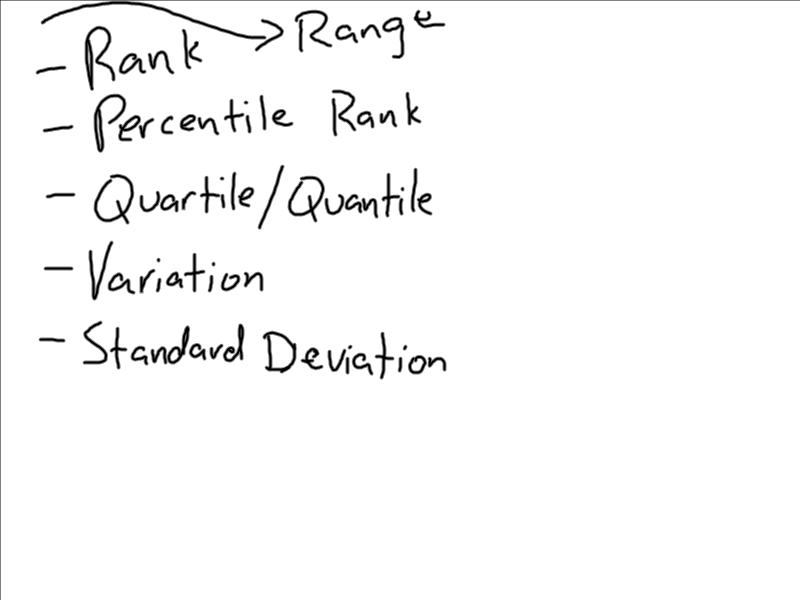 Range
- Rank
- Percentile Rank
- Quartile/Quantile
- Variation
- Standard Deviation